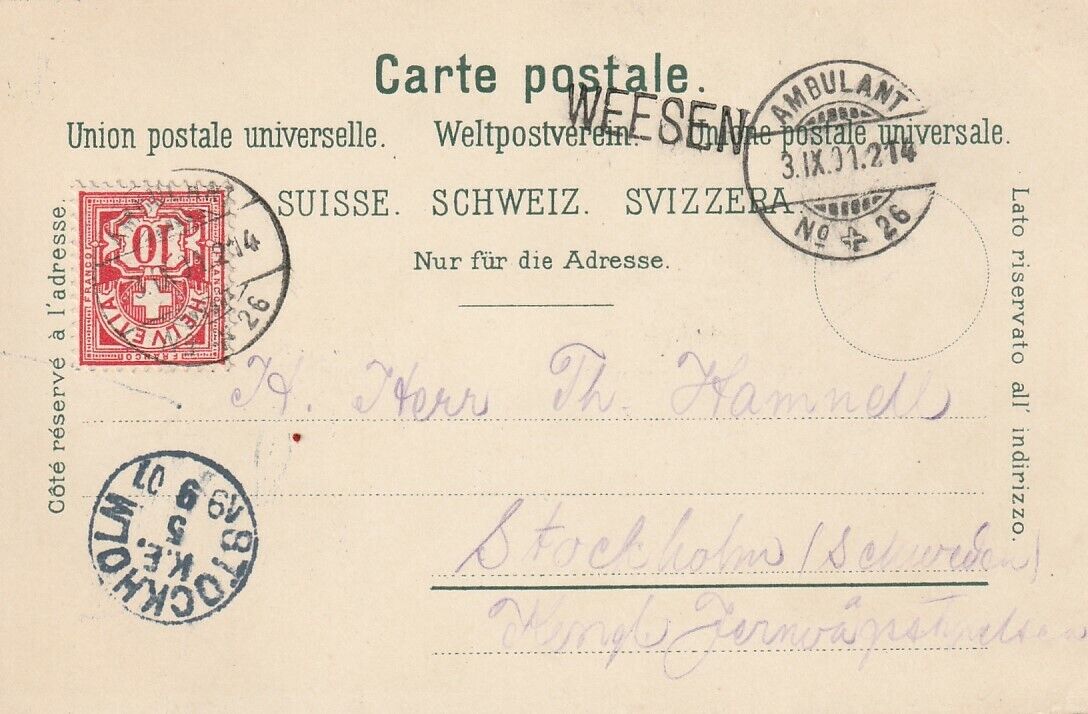 Carte postale.
WEESEN
AMBULANT
3.IX.01.214
No 26
Union postale universelle. Weltpostverein. Unione postale universale.
SUISSE. SCHWEIZ. SVIZZERA.
Nur für die Adresse.
Côté réservé à l'adresse.
Lato riservato all' indirizzo.
FRANCO
10
HELVETIA
FRANCO
214
26
H. Herr Th.
Stockholm (Schweden)
Kngl.
STOCKHOLM
19 01
5 9
K.E.